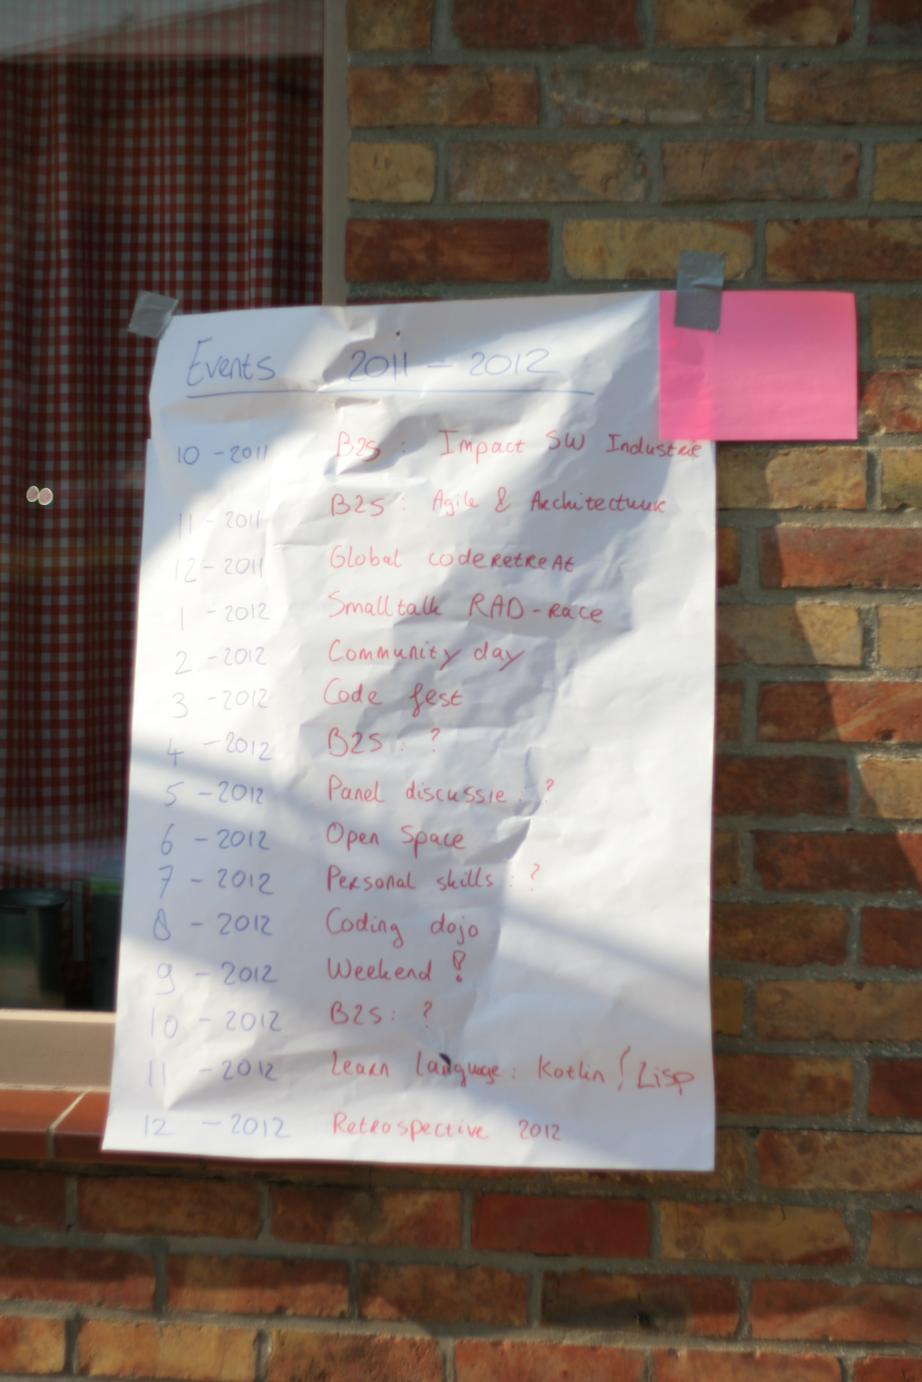 Events 2011 - 2012
10 - 2011 B2S: Impact SW Industrie
11 - 2011 B2S: Agile & Architectuur
12 - 2011 Global coderetreat
1 - 2012 Smalltalk RAD-race
2 - 2012 Community day
3 - 2012 Code fest
4 - 2012 B2S: ?
5 - 2012 Panel discussie: ?
6 - 2012 Open Space
7 - 2012 Personal skills: ?
8 - 2012 Coding dojo
9 - 2012 Weekend !
10 - 2012 B2S: ?
11 - 2012 Learn language: Kotlin / Lisp
12 - 2012 Retrospective 2012